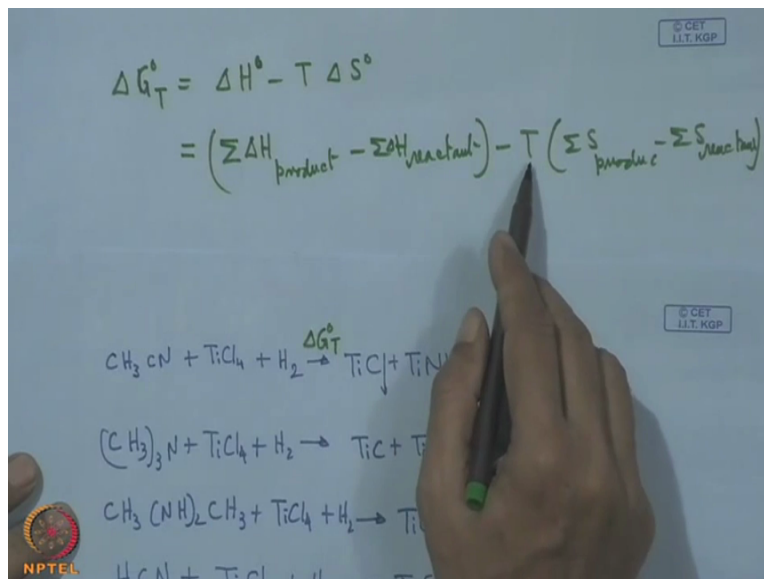 © CET
I.I.T. KGP
ΔG°T = ΔH° - T ΔS°
= (ΣΔH product - ΣΔH reactant) - T (ΣS produc - ΣS reactant)
© CET
I.I.T. KGP
CH3CN + TiCl4 + H2 → ΔG°T TiC↓ + TiN
(CH3)3N + TiCl4 + H2 → TiC +
CH3(NH)2CH3 + TiCl4 + H2 →
NPTEL